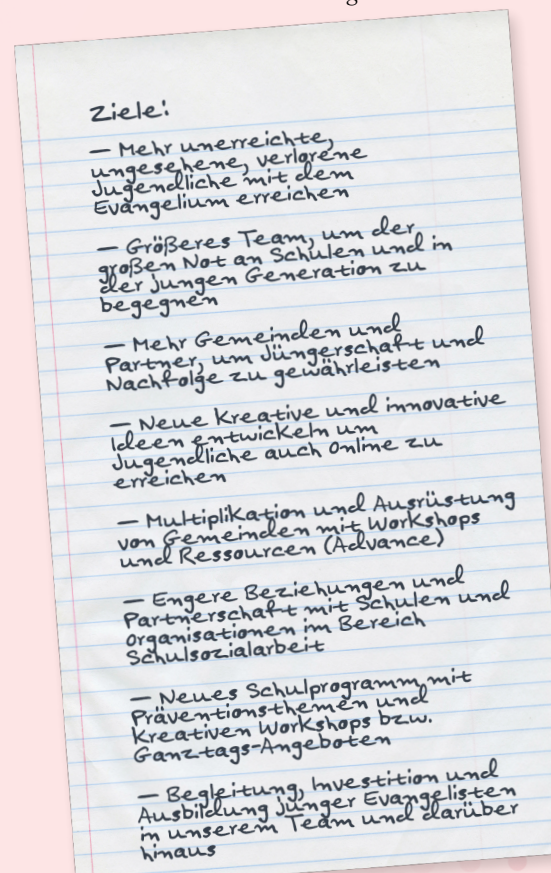 Ziele:
– Mehr unerreichte,
ungesehene, verlorene
Jugendliche mit dem
Evangelium erreichen
– Größeres Team, um der
großen Not an Schulen und in
der Jungen Generation zu
begegnen
– Mehr Gemeinden und
Partner, um Jüngerschaft und
Nachfolge zu gewährleisten
– Neue Kreative und innovative
Ideen entwickeln um
Jugendliche auch Online zu
erreichen
– Multiplikation und Ausrüstung
von Gemeinden mit Workshops
und Ressourcen (Advance)
– Engere Beziehungen und
Partnerschaft mit Schulen und
Organisationen im Bereich
Schulsozialarbeit
– Neues Schulprogramm mit
Präventionsthemen und
Kreativen Workshops bzw.
Ganztags-Angeboten
– Begleitung, Investition und
Ausbildung junger Evangelisten
in unserem Team und darüber
hinaus